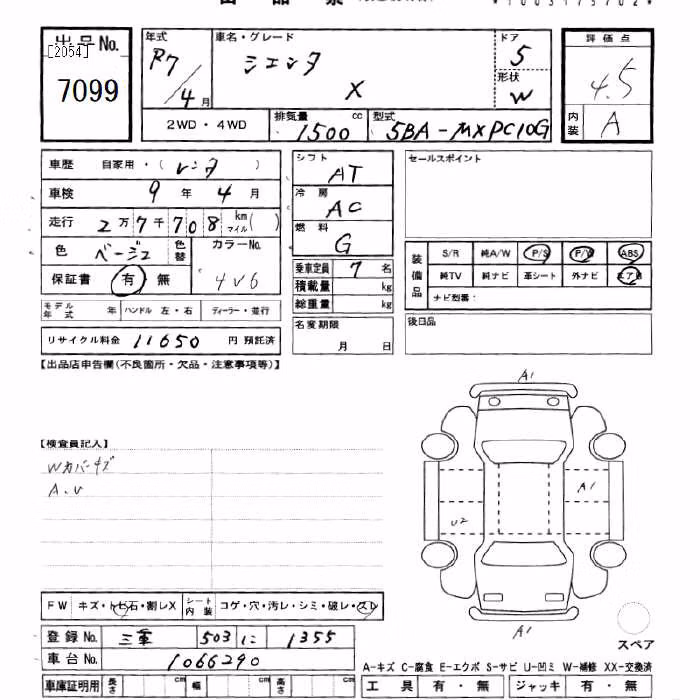 出品票
*10031757 02*
出品No. [2054] 7099
年式 R7/4月
車名・グレード シエンタ X
ドア 5
形状 W
評価点 4.5
内装 A
2WD・4WD
排気量 1500 cc
型式 5BA-MXPC10G
車歴 自家用・(レンタ)
車検 9年4月
走行 2万7千708 km マイル( )
色 ベージュ 色替 カラーNo. 4V6
保証書 有 無
モデル年式 年 ハンドル 左・右 ディーラー・並行
リサイクル料金 11650 円 預託済
シフト AT
冷房 AC
燃料 G
乗車定員 7 名
積載量 kg
総重量 kg
名変期限 月 日
セールスポイント
装備品 S/R 純A/W P/S P/W ABS
純TV 純ナビ 革シート 外ナビ エアB
ナビ型番:
後日品
【出品店申告欄(不良箇所・欠品・注意事項等)】
【検査員記入】
Wカバーキズ
A.U
A1
A1
U2
A1
スペア
FW キズ・トビ石・割レX シート内装 コゲ・穴・汚レ・シミ・破レ・スレ
登録No. 三重 503 に 1355
車台No. 1066290
車庫証明用 長さ cm 幅 cm 高さ cm
A-キズ C-腐食 E-エクボ S-サビ U-凹ミ W-補修 XX-交換済
工具 有・無 ジャッキ 有・無